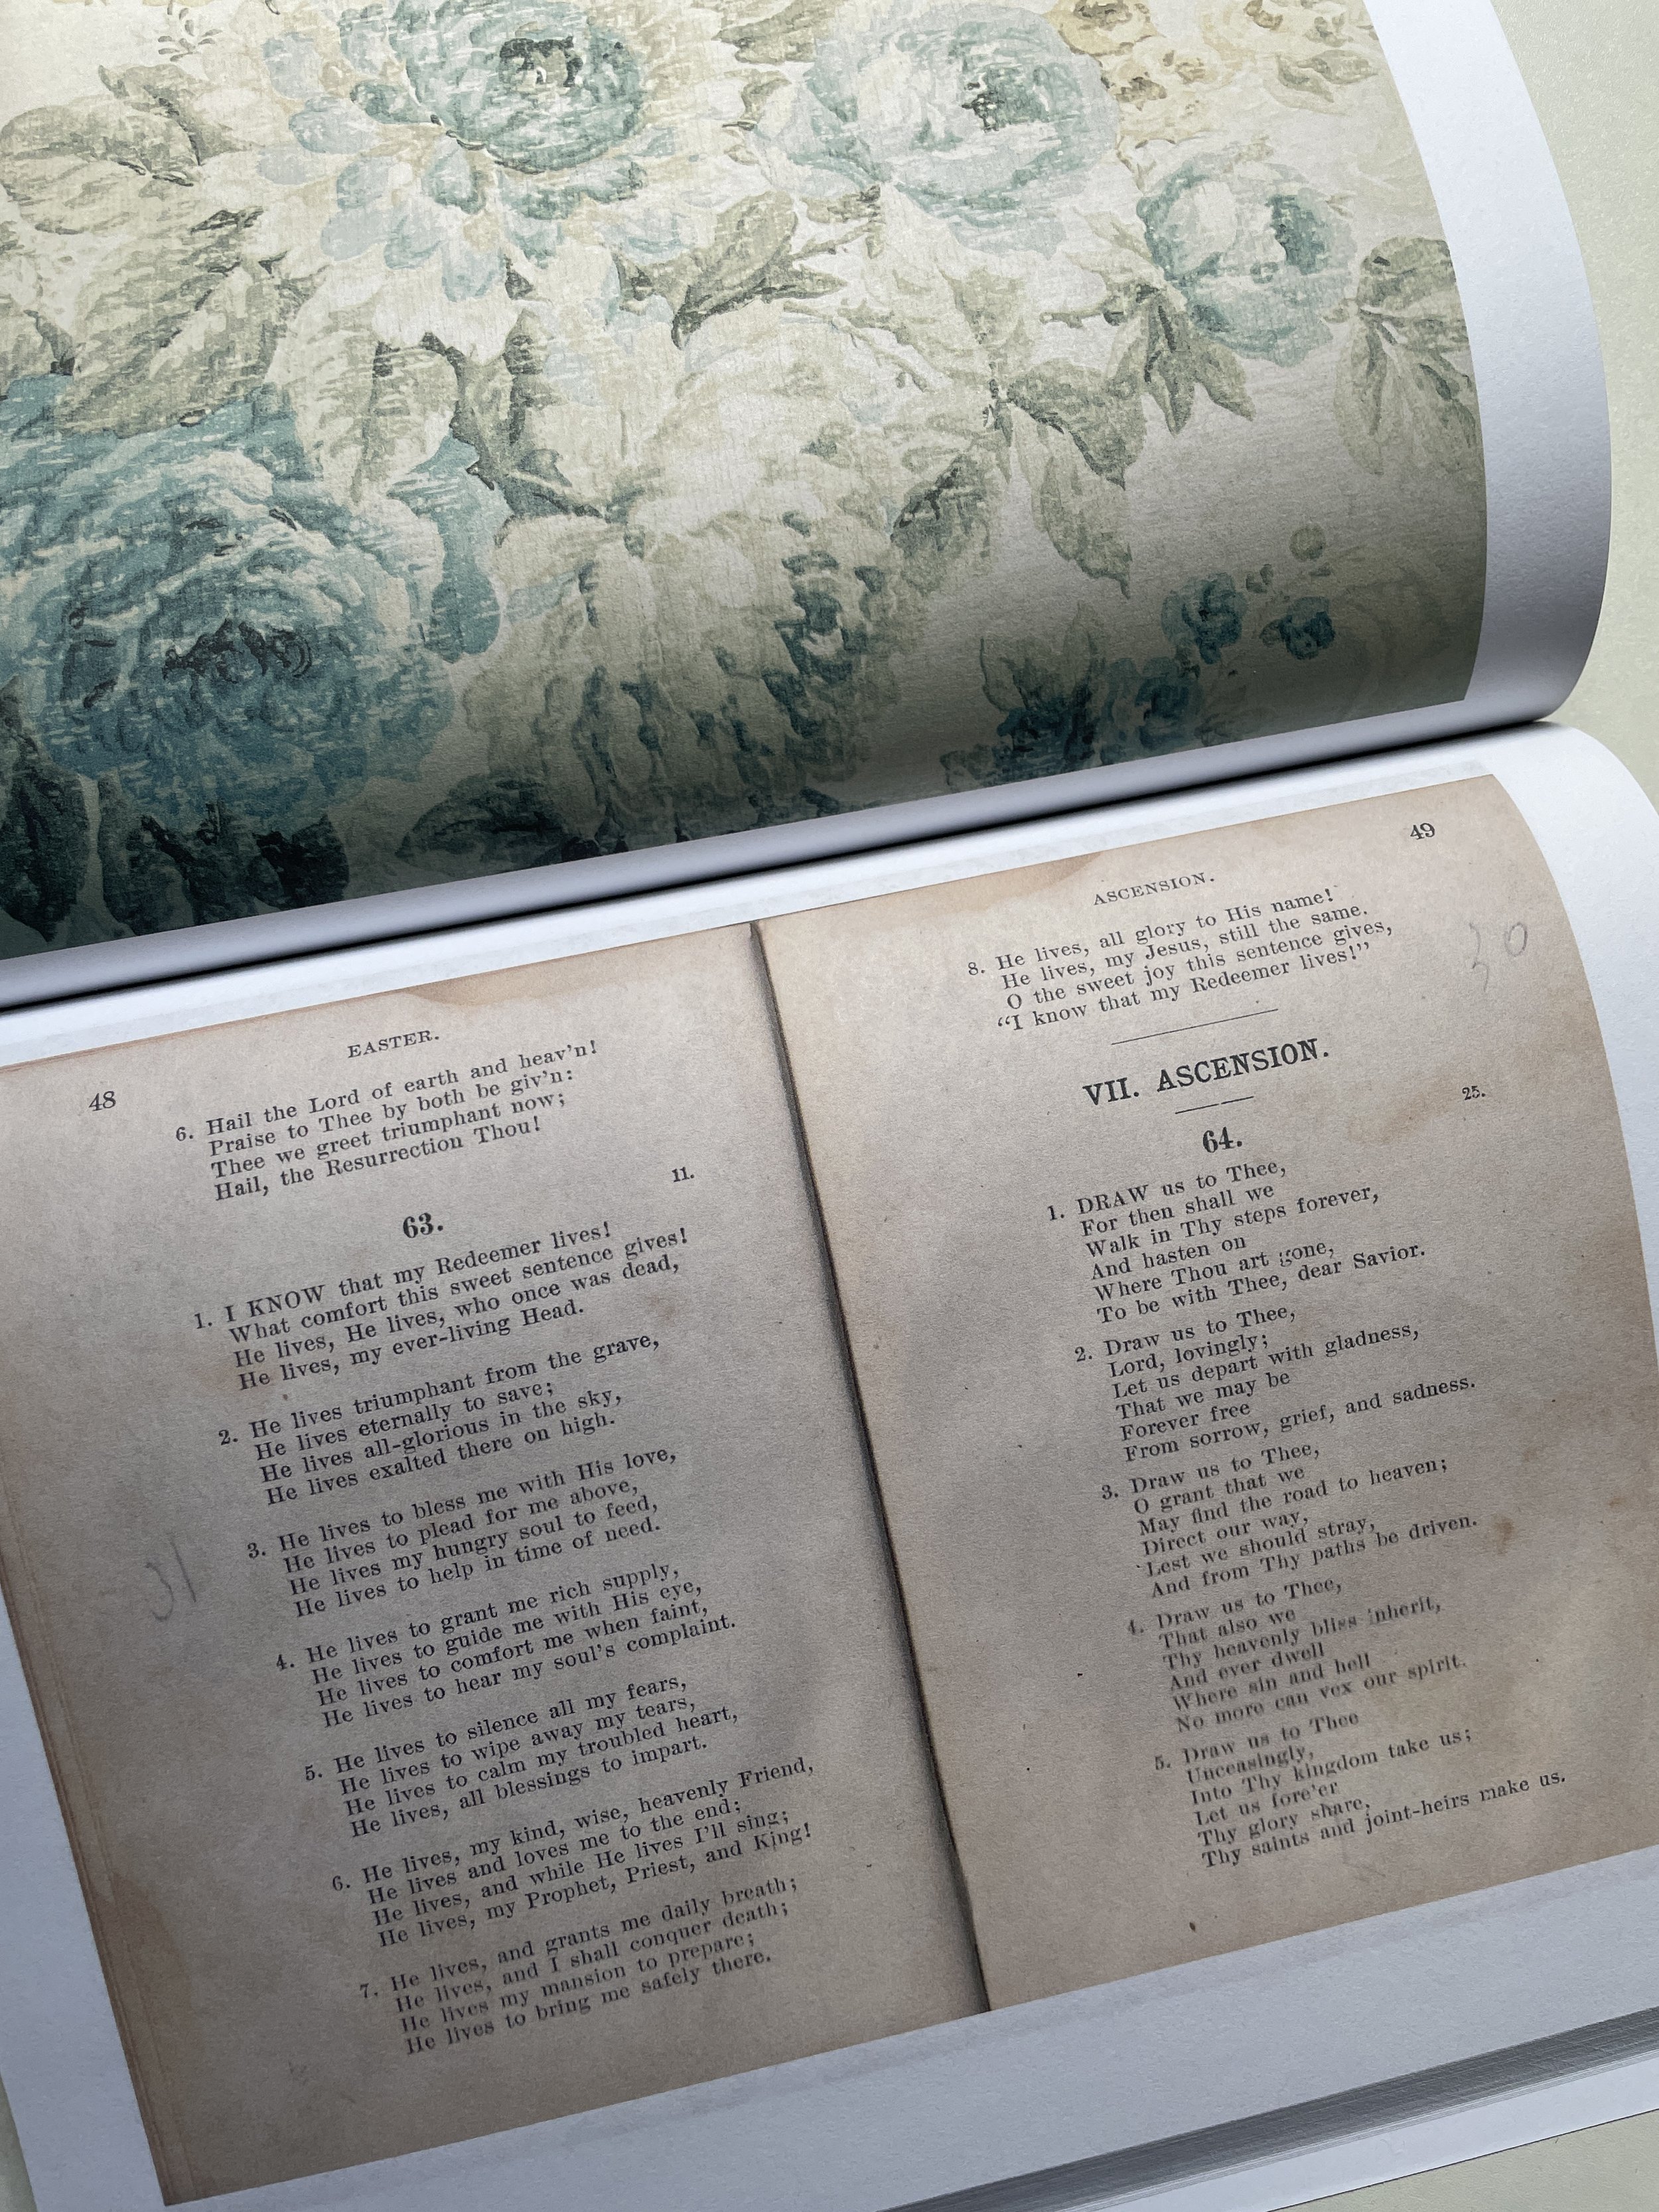 48
EASTER.
6. Hail the Lord of earth and heav'n!
Praise to Thee by both be giv'n:
Thee we greet triumphant now;
Hail, the Resurrection Thou!
63.
11.
1. I KNOW that my Redeemer lives!
What comfort this sweet sentence gives!
He lives, He lives, who once was dead,
He lives, my ever-living Head.
2. He lives triumphant from the grave,
He lives eternally to save;
He lives all-glorious in the sky,
He lives exalted there on high.
3. He lives to bless me with His love,
He lives to plead for me above,
He lives my hungry soul to feed,
He lives to help in time of need.
31
4. He lives to grant me rich supply,
He lives to guide me with His eye,
He lives to comfort me when faint,
He lives to hear my soul's complaint.
5. He lives to silence all my fears,
He lives to wipe away my tears,
He lives to calm my troubled heart,
He lives, all blessings to impart.
6. He lives, my kind, wise, heavenly Friend,
He lives and loves me to the end;
He lives, and while He lives I'll sing;
He lives, my Prophet, Priest, and King!
7. He lives, and grants me daily breath;
He lives, and I shall conquer death;
He lives my mansion to prepare;
He lives to bring me safely there.
ASCENSION.
49
8. He lives, all glory to His name!
He lives, my Jesus, still the same.
O the sweet joy this sentence gives,
“I know that my Redeemer lives!”
30
VII. ASCENSION.
64.
25.
1. DRAW us to Thee,
For then shall we
Walk in Thy steps forever,
And hasten on
Where Thou art gone,
To be with Thee, dear Savior.
2. Draw us to Thee,
Lord, lovingly;
Let us depart with gladness,
That we may be
Forever free
From sorrow, grief, and sadness.
3. Draw us to Thee,
O grant that we
May find the road to heaven;
Direct our way,
Lest we should stray,
And from Thy paths be driven.
4. Draw us to Thee,
That also we
Thy heavenly bliss inherit,
And ever dwell
Where sin and hell
No more can vex our spirit.
5. Draw us to Thee
Unceasingly,
Into Thy kingdom take us;
Let us fore'er
Thy glory share,
Thy saints and joint-heirs make us.